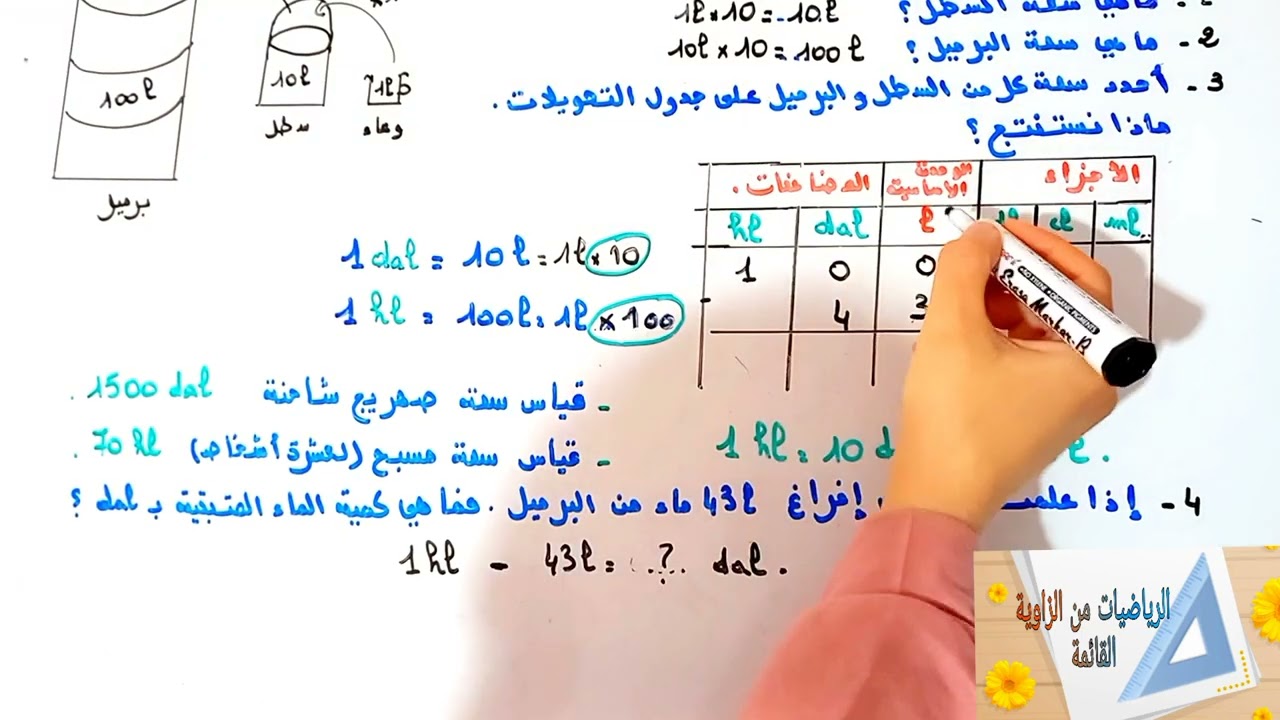 1l × 10 = 10l
2 - ما هي سعة البرميل؟ 10l × 10 = 100l
3 - أحدد سعة كل من السطل و البرميل على جدول التحويلات.
ماذا نستنتج؟
100l
برميل
10l
سطل
1l
وعاء
الأجزاء
الوحدة الأساسية
المضاعفات.
hl dal l cl ml
1 0 0
4 3
1 dal = 10l = 1l × 10
1 hl = 100l = 1l × 100
- قياس سعة صهريج شاحنة 1500 dal.
- قياس سعة مسبح (لعشرة أشخاص) 70 hl.
1 hl = 10
4 - إذا إفراغ 43l ماء من البرميل. فما هي كمية الماء المتبقية بـ dal؟
1hl - 43l = ..?.. dal.
Erase Marker-B
الرياضيات من الزاوية
القائمة